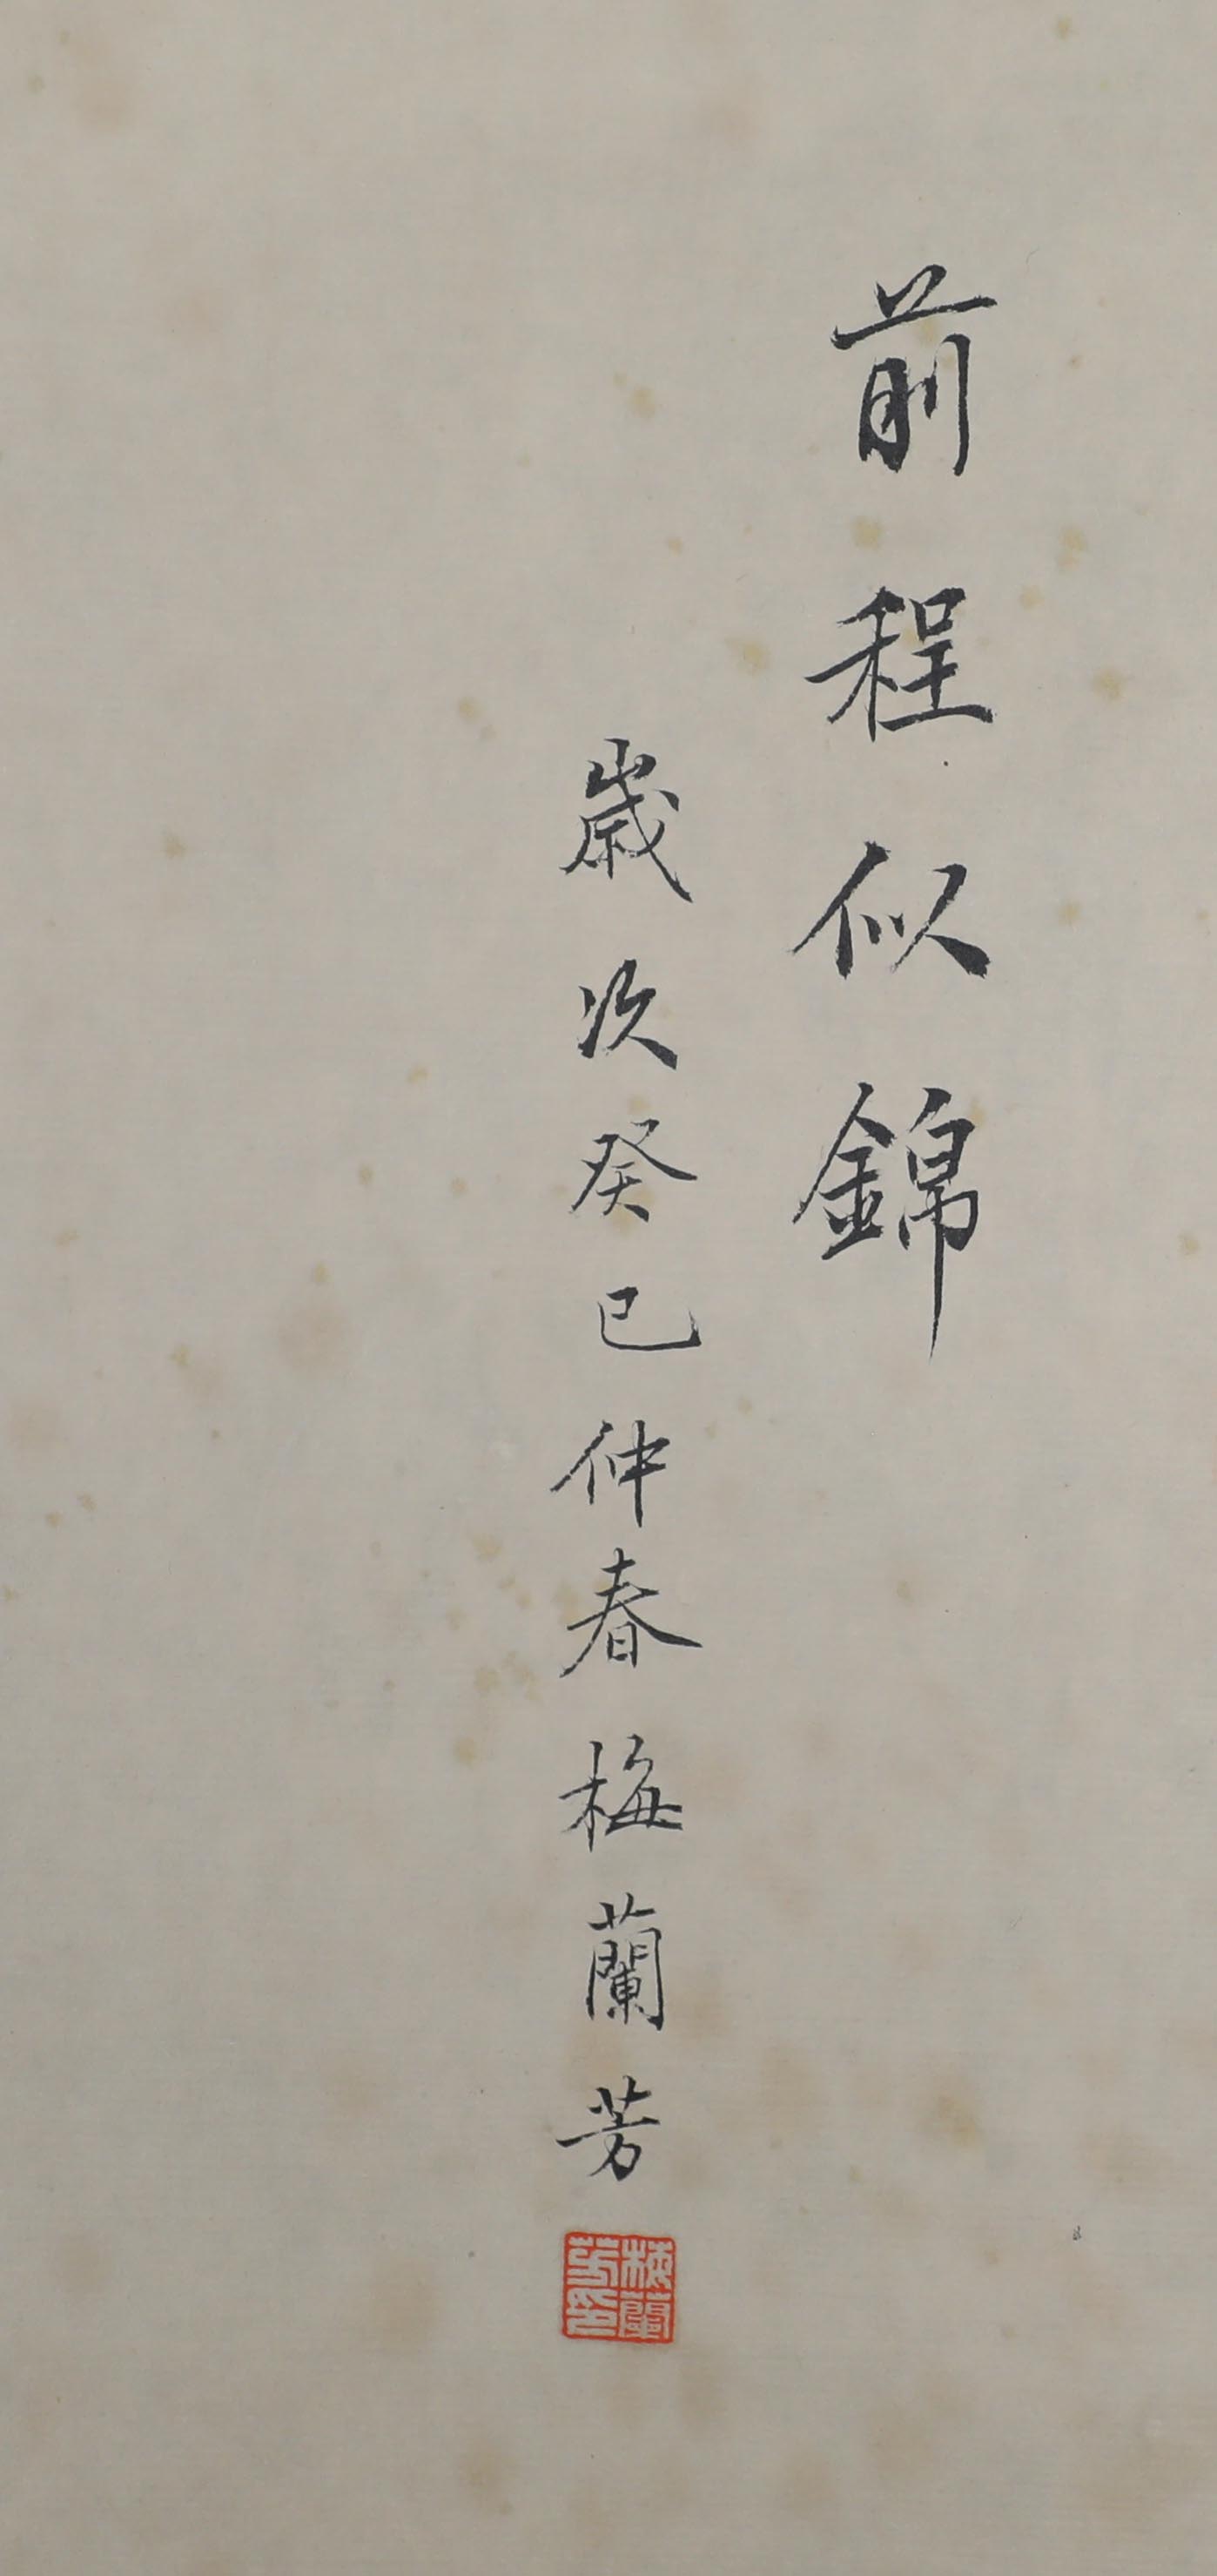 前程似錦
歲次癸巳仲春梅蘭芳
梅蘭
芳印